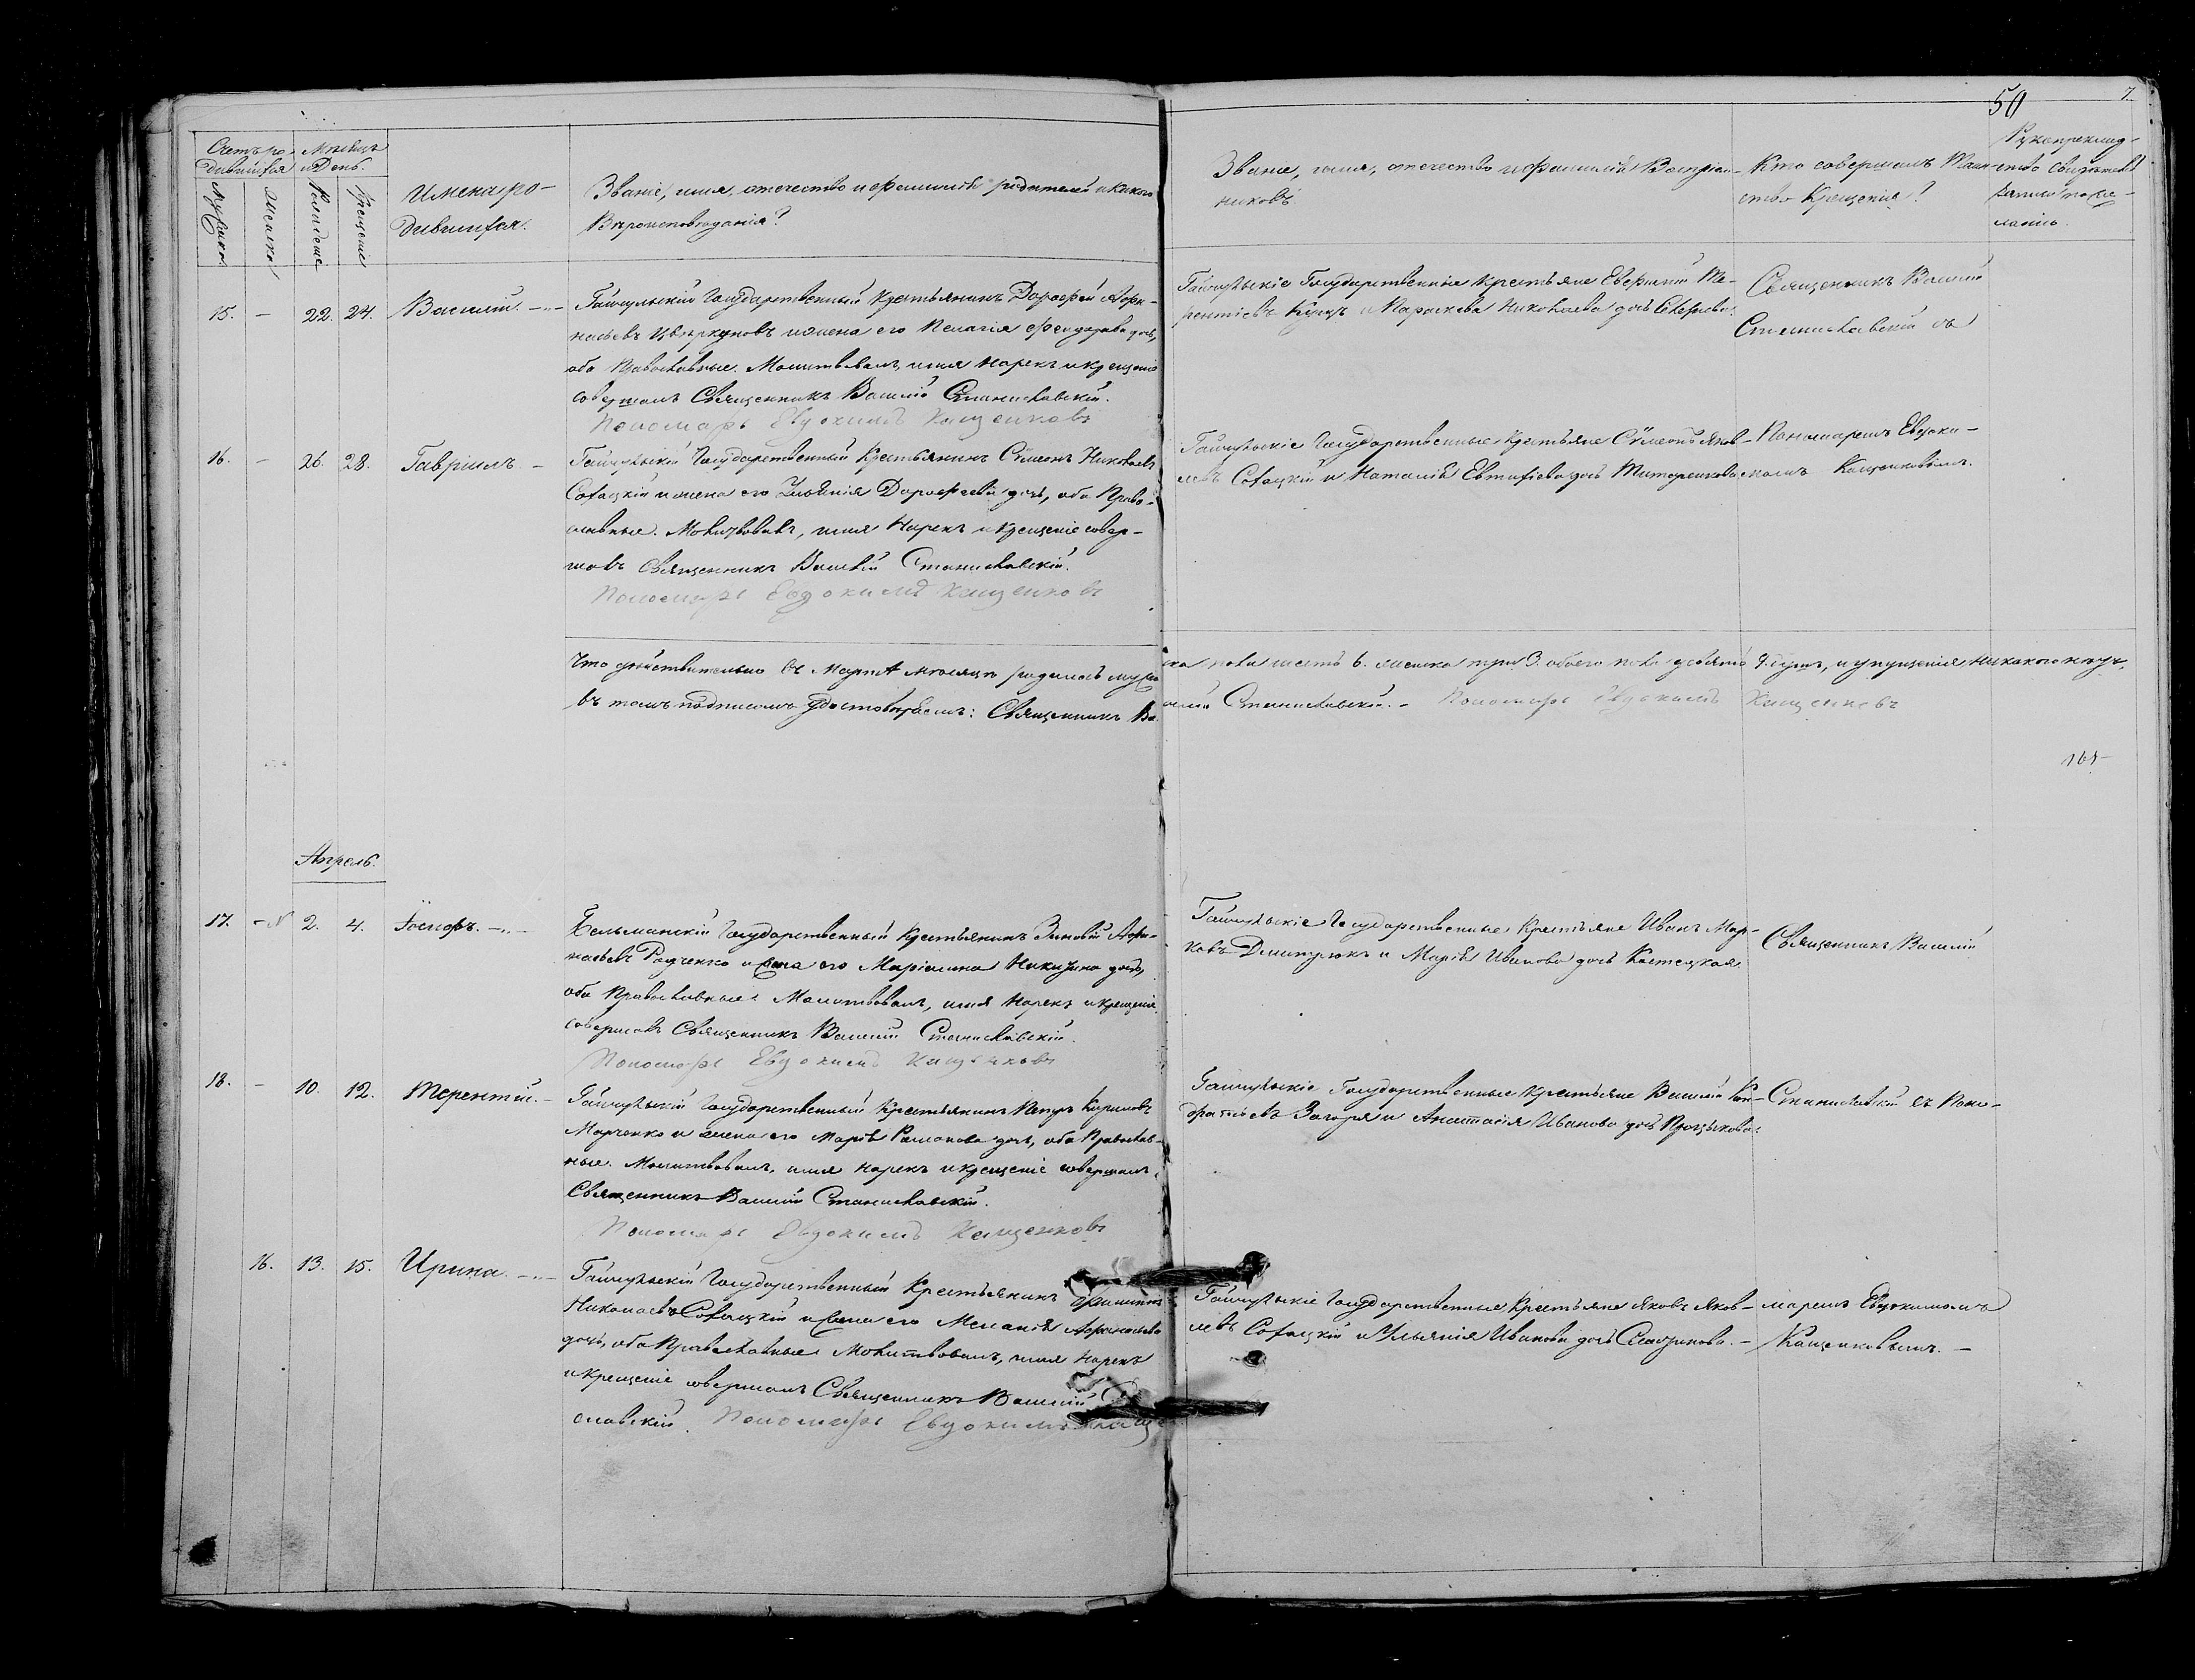 50
7.
Счетъ ро- Мѣсяцъ
дившихся и День.
Мужска Женска Рожденіе Крещеніе
Имена ро-
дившихся.
Званіе, имя, отечество и фамилія родителей и какого
Вѣроисповѣданія?
Званіе, имя, отечество и фамилія Воспріем-
никовъ.
Кто совершалъ Таин-
ство Крещенія?
Рукоприклад-
ство свидѣтелей
записи по же-
ланію.
15. - 22. 24. Василій.
Гайчульскій Государственный Крестьянинъ Дорофей Афа-
насьевъ и жена его Пелагія Феодорова дочь,
оба Православные. Молитвовалъ, имя нарекъ и крещеніе
совершалъ Священникъ Василій Станиславскій.
Пономарь Евдокимъ Кащенковъ
Гайчульскіе Государственные Крестьяне Евфимій Те-
рентіевъ Куцъ и Параскева Николаева дочь
Священникъ Василій
Станиславскій съ
16. - 26. 28. Гавріилъ. -
Гайчульскій Государственный Крестьянинъ Сѵмеонъ Николаевъ
Софацкій и жена его Іуліанія Дорофеева дочь, оба Право-
славные. Молитвовалъ, имя Нарекъ и Крещеніе совер-
шалъ Священникъ Василій Станиславскій.
Пономарь Евдокимъ Кащенковъ
Гайчульскіе Государственные Крестьяне Сѵмеонъ Яков-
левъ Софацкій и Наталія Евтихіева дочь Титоренкова
Пономаремъ Евдоки-
момъ Кащенковымъ.
Что дѣйствительно въ Мартѣ мѣсяцѣ родилось мужеска пола шесть 6. женска три 3. обоего пола девять 9. душъ, и упущенія никакого нѣтъ,
въ томъ подписомъ удостовѣряемъ: Священникъ Василій Станиславскій. - Пономарь Евдокимъ Кащенковъ
Апрель.
17. - 2. 4. Іосифъ.
Бельманскій Государственный Крестьянинъ Зиновій Афа-
насьевъ Радченко и жена его Маріанна Никитина дочь,
оба Православные. Молитвовалъ, имя Нарекъ и крещеніе
совершалъ Священникъ Василій Станиславскій.
Пономарь Евдокимъ Кащенковъ
Гайчульскіе Государственные Крестьяне Иванъ Мар-
ковъ Дмитрюкъ и Марія Иванова дочь Костецкая.
Священникъ Василій
18. - 10. 12. Терентій. -
Гайчульскій Государственный Крестьянинъ Петръ Кириловъ
Марченко и жена его Марія Романова дочь, оба Православ-
ные. Молитвовалъ, имя нарекъ и крещеніе совершалъ
Священникъ Василій Станиславскій.
Пономарь Евдокимъ Кащенковъ
Гайчульскіе Государственные Крестьяне Василій Кон-
дратьевъ Загоря и Анастасія Иванова дочь
Станиславскій съ Поно-
16. 13. 15. Ирина.
Гайчульскій Государственный Крестьянинъ Филиппъ
Николаевъ Софацкій и жена его Меланія Афанасьева
дочь, оба Православные Молитвовалъ, имя Нарекъ
и Крещеніе совершалъ Священникъ Василій
славскій. Пономарь Евдокимъ Кащ
Гайчульскіе Государственные Крестьяне Яковъ Яков-
левъ Софацкій и Ульянія Иванова дочь
маремъ Евдокимомъ
Кащенковымъ. -